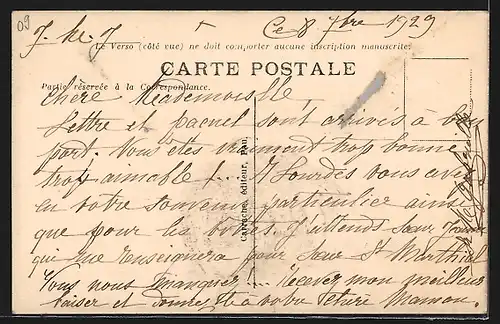 09
J. M. J. + Ce 8 7bre 1929
Le Verso (côté vue) ne doit comporter aucune inscription manuscrite.
CARTE POSTALE
Partie réservée à la Correspondance.
chère Mademoiselle,
Lettre et paquet sont arrivés à bon
port. Vous êtes vraiment trop bonne
trop aimable !... A Lourdes vous avez
eu votre souvenir particulier ainsi
que pour les vôtres. J'attends Sœur
qui me renseignera pour Sœur St Marthial
Vous nous manquez !... Recevez mon meilleur
baiser et à votre chère Maman.
Carrache, éditeur, Pau.